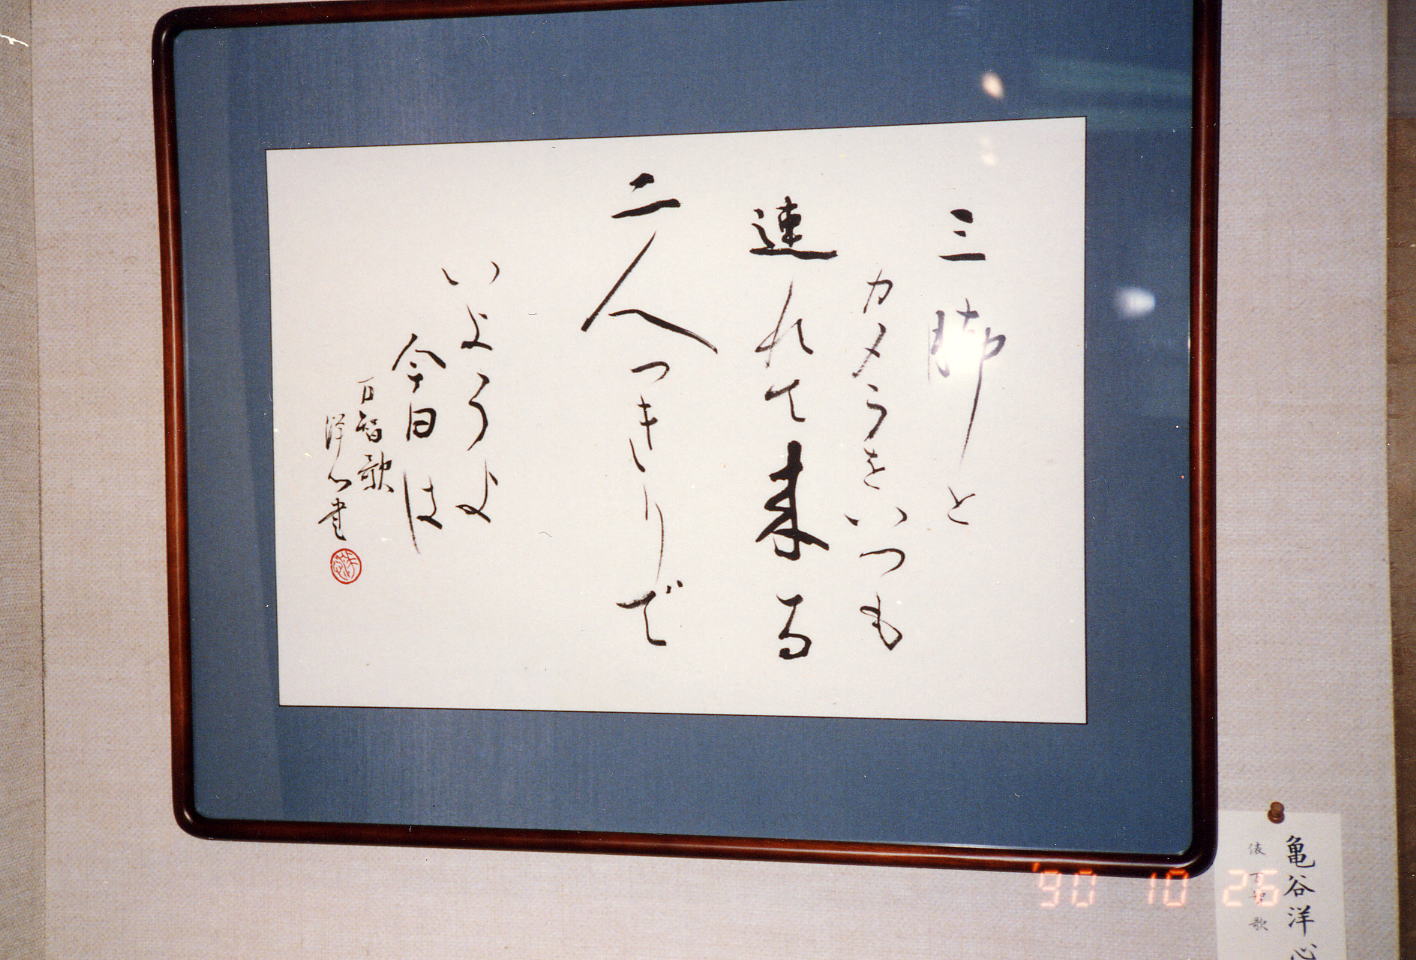 三脚と
カメラをいつも
連れて来る
二人っきりで
いようよ
今日は
万智歌
洋心書
亀谷洋心
俵万智歌
'90 10 26